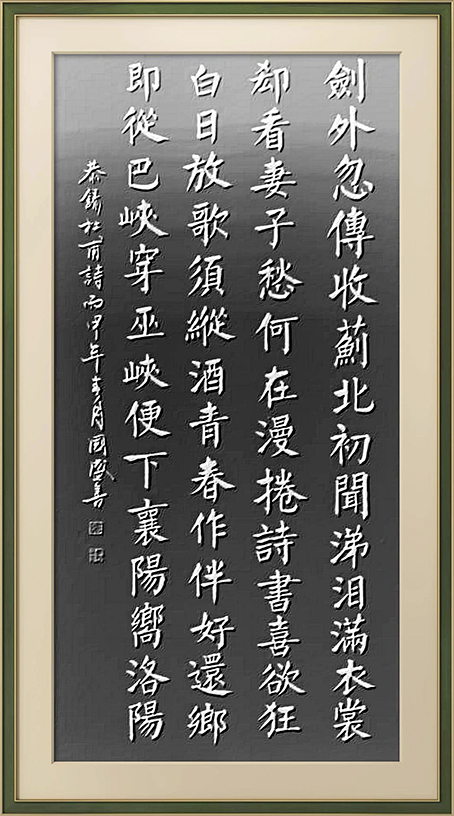 劍外忽傳收薊北初聞涕泪滿衣裳
却看妻子愁何在漫捲詩書喜欲狂
白日放歌須縱酒青春作伴好還鄉
即從巴峽穿巫峽便下襄陽嚮洛陽
恭錄杜甫詩丙申年春月國盛書